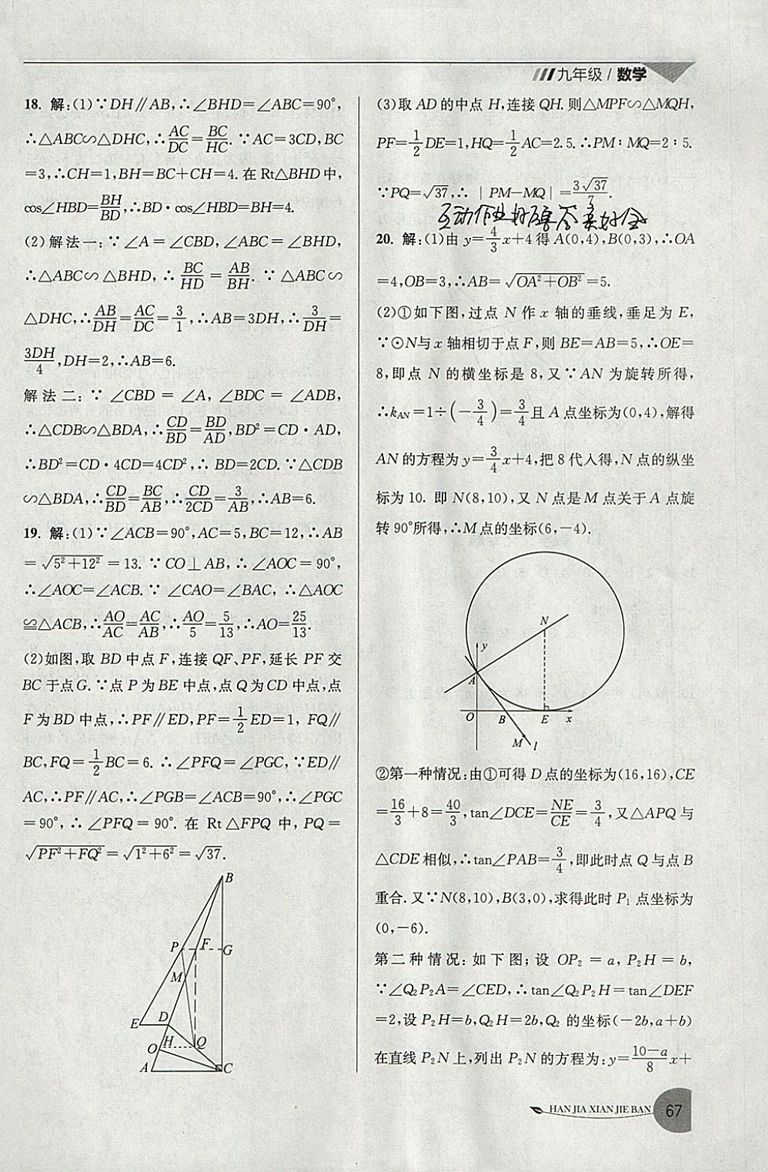 九年级/数学
18. 解:(1)∵DH∥AB,∴∠BHD=∠ABC=90°,
∴△ABC∽△DHC,∴AC/DC=BC/HC.∵AC=3CD,BC
=3,∴CH=1,BH=BC+CH=4.在Rt△BHD中,
cos∠HBD=BH/BD,∴BD·cos∠HBD=BH=4.
(2)解法一:∵∠A=∠CBD,∠ABC=∠BHD,
∴△ABC∽△BHD,∴BC/HD=AB/BH.∵△ABC∽
△DHC,∴AB/DH=AC/DC=3/1,∴AB=3DH,∴3/DH=
3DH/4,DH=2,∴AB=6.
解法二:∵∠CBD=∠A,∠BDC=∠ADB,
∴△CDB∽△BDA,∴CD/BD=BD/AD,BD²=CD·AD,
∴BD²=CD·4CD=4CD²,∴BD=2CD.∵△CDB
∽△BDA,∴CD/BD=BC/AB,∴CD/2CD=3/AB,∴AB=6.
19. 解:(1)∵∠ACB=90°,AC=5,BC=12,∴AB
=√(5²+12²)=13.∵CO⊥AB,∴∠AOC=90°,
∴∠AOC=∠ACB.∵∠CAO=∠BAC,∴△AOC
≌△ACB,∴AO/AC=AC/AB,∴AO/5=5/13,∴AO=25/13.
(2)如图,取BD中点F,连接QF、PF,延长PF交
BC于点G.∵点P为BE中点,点Q为CD中点,点
F为BD中点,∴PF∥ED,PF=1/2ED=1,FQ∥
BC,FQ=1/2BC=6.∴∠PFQ=∠PGC,∵ED∥
AC,∴PF∥AC,∴∠PGB=∠ACB=90°,∴∠PGC
=90°,∴∠PFQ=90°.在Rt△FPQ中,PQ=
√(PF²+FQ²)=√(1²+6²)=√37.
B
P F G
M
E D
H Q
O
A C
(3)取AD的中点H,连接QH.则△MPF∽△MQH,
PF=1/2DE=1,HQ=1/2AC=2.5.∴PM∶MQ=2∶5.
∵PQ=√37,∴|PM-MQ|=3√37/7.
20. 解:(1)由y=4/3x+4得A(0,4),B(0,3),∴OA
=4,OB=3,∴AB=√(OA²+OB²)=5.
(2)①如下图,过点N作x轴的垂线,垂足为E,
∵⊙N与x轴相切于点F,则BE=AB=5,∴OE=
8,即点N的横坐标是8,又∵AN为旋转所得,
∴kAN=1÷(-3/4)=3/4且A点坐标为(0,4),解得
AN的方程为y=3/4x+4,把8代入得,N点的纵坐
标为10.即N(8,10),又N点是M点关于A点旋
转90°所得,∴M点的坐标(6,-4).
N
y
A
O B E x
M l
②第一种情况:由①可得D点的坐标为(16,16),CE
=16/3+8=40/3,tan∠DCE=NE/CE=3/4,又△APQ与
△CDE相似,∴tan∠PAB=3/4,即此时点Q与点B
重合.又∵N(8,10),B(3,0),求得此时P₁点坐标为
(0,-6).
第二种情况:如下图;设OP₂=a,P₂H=b,
∵∠Q₂P₂A=∠CED,∴tan∠Q₂P₂H=tan∠DEF
=2,设P₂H=b,Q₂H=2b,Q₂的坐标(-2b,a+b)
在直线P₂N上,列出P₂N的方程为:y=(10-a)/8x+
HAN JIA XIAN JIE BAN 67